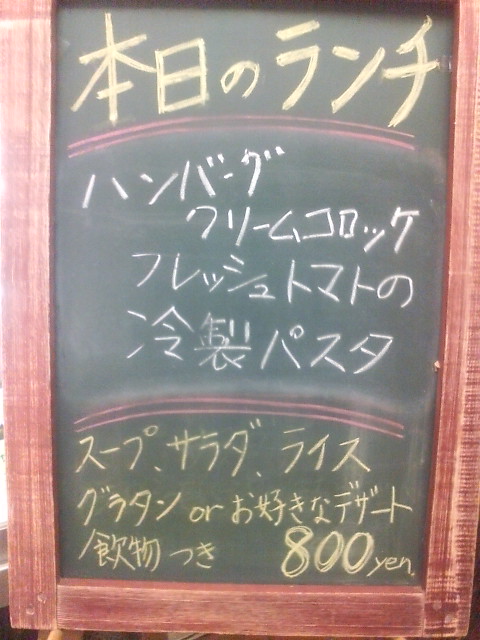 本日のランチ
ハンバーグ
クリームコロッケ
フレッシュトマトの
冷製パスタ
スープ、サラダ、ライス
グラタン or お好きなデザート
飲物つき 800yen.